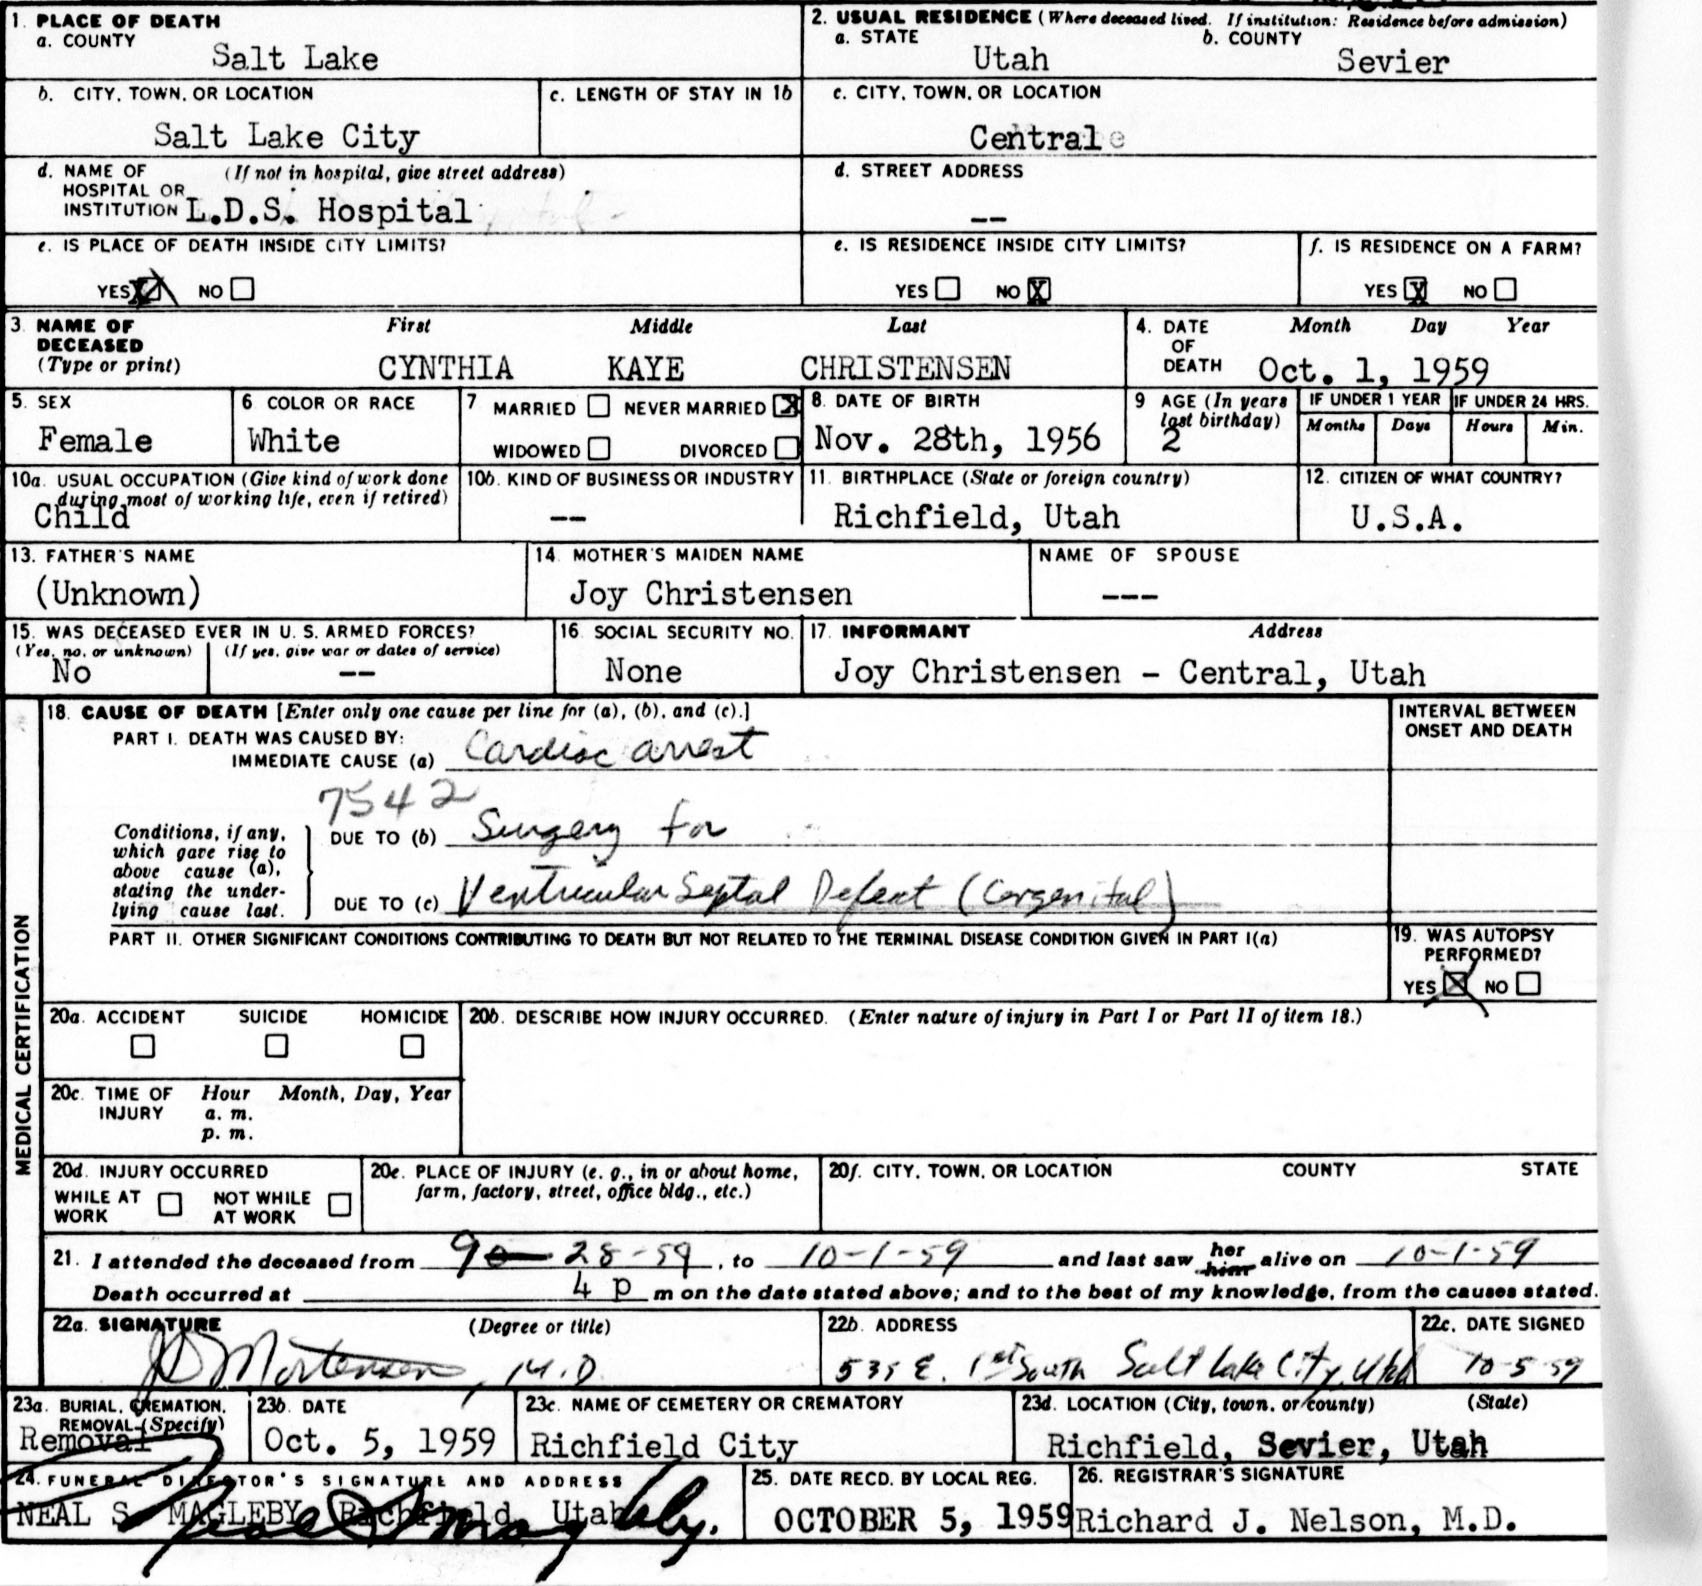 1. PLACE OF DEATH
a. COUNTY
Salt Lake
2. USUAL RESIDENCE (Where deceased lived. If institution: Residence before admission)
a. STATE
Utah
b. COUNTY
Sevier
b. CITY, TOWN, OR LOCATION
Salt Lake City
c. LENGTH OF STAY IN 1b
c. CITY, TOWN, OR LOCATION
Central
d. NAME OF (If not in hospital, give street address)
HOSPITAL OR
INSTITUTION L.D.S. Hospital
d. STREET ADDRESS
--
e. IS PLACE OF DEATH INSIDE CITY LIMITS?
YES X NO
e. IS RESIDENCE INSIDE CITY LIMITS?
YES NO X
f. IS RESIDENCE ON A FARM?
YES X NO
3. NAME OF DECEASED
(Type or print)
First Middle Last
CYNTHIA KAYE CHRISTENSEN
4. DATE OF DEATH
Month Day Year
Oct. 1, 1959
5. SEX
Female
6 COLOR OR RACE
White
7 MARRIED NEVER MARRIED X
WIDOWED DIVORCED
8. DATE OF BIRTH
Nov. 28th, 1956
9 AGE (In years last birthday)
2
IF UNDER 1 YEAR
Months Days
IF UNDER 24 HRS.
Hours Min.
10a. USUAL OCCUPATION (Give kind of work done
during most of working life, even if retired)
Child
10b. KIND OF BUSINESS OR INDUSTRY
--
11. BIRTHPLACE (State or foreign country)
Richfield, Utah
12. CITIZEN OF WHAT COUNTRY?
U.S.A.
13. FATHER'S NAME
(Unknown)
14. MOTHER'S MAIDEN NAME
Joy Christensen
NAME OF SPOUSE
---
15. WAS DECEASED EVER IN U. S. ARMED FORCES?
(Yes, no, or unknown) (If yes, give war or dates of service)
No --
16. SOCIAL SECURITY NO.
None
17. INFORMANT Address
Joy Christensen - Central, Utah
MEDICAL CERTIFICATION
18. CAUSE OF DEATH [Enter only one cause per line for (a), (b), and (c).]
PART I. DEATH WAS CAUSED BY:
IMMEDIATE CAUSE (a) Cardiac arrest
INTERVAL BETWEEN
ONSET AND DEATH
7542
Conditions, if any,
which gave rise to
above cause (a),
stating the under-
lying cause last.
DUE TO (b) Surgery for
DUE TO (c) Ventricular Septal Defect (Congenital)
PART II. OTHER SIGNIFICANT CONDITIONS CONTRIBUTING TO DEATH BUT NOT RELATED TO THE TERMINAL DISEASE CONDITION GIVEN IN PART I(a)
19. WAS AUTOPSY
PERFORMED?
YES X NO
20a. ACCIDENT SUICIDE HOMICIDE
20b. DESCRIBE HOW INJURY OCCURRED. (Enter nature of injury in Part I or Part II of item 18.)
20c. TIME OF INJURY
Hour Month, Day, Year
a. m.
p. m.
20d. INJURY OCCURRED
WHILE AT WORK NOT WHILE AT WORK
20e. PLACE OF INJURY (e. g., in or about home,
farm, factory, street, office bldg., etc.)
20f. CITY, TOWN, OR LOCATION COUNTY STATE
21. I attended the deceased from 9-28-59, to 10-1-59 and last saw her him alive on 10-1-59
Death occurred at 4 p m on the date stated above; and to the best of my knowledge, from the causes stated.
22a. SIGNATURE (Degree or title)
JD Mortensen, M.D
22b. ADDRESS
535 E. 1st South Salt Lake City, Utah
22c. DATE SIGNED
10-5-59
23a. BURIAL, CREMATION,
REMOVAL (Specify)
Removal
23b. DATE
Oct. 5, 1959
23c. NAME OF CEMETERY OR CREMATORY
Richfield City
23d. LOCATION (City, town, or county) (State)
Richfield, Sevier, Utah
24. FUNERAL DIRECTOR'S SIGNATURE AND ADDRESS
NEAL S. MAGLEBY Richfield, Utah
Neal S Magleby.
25. DATE RECD. BY LOCAL REG.
OCTOBER 5, 1959
26. REGISTRAR'S SIGNATURE
Richard J. Nelson, M.D.